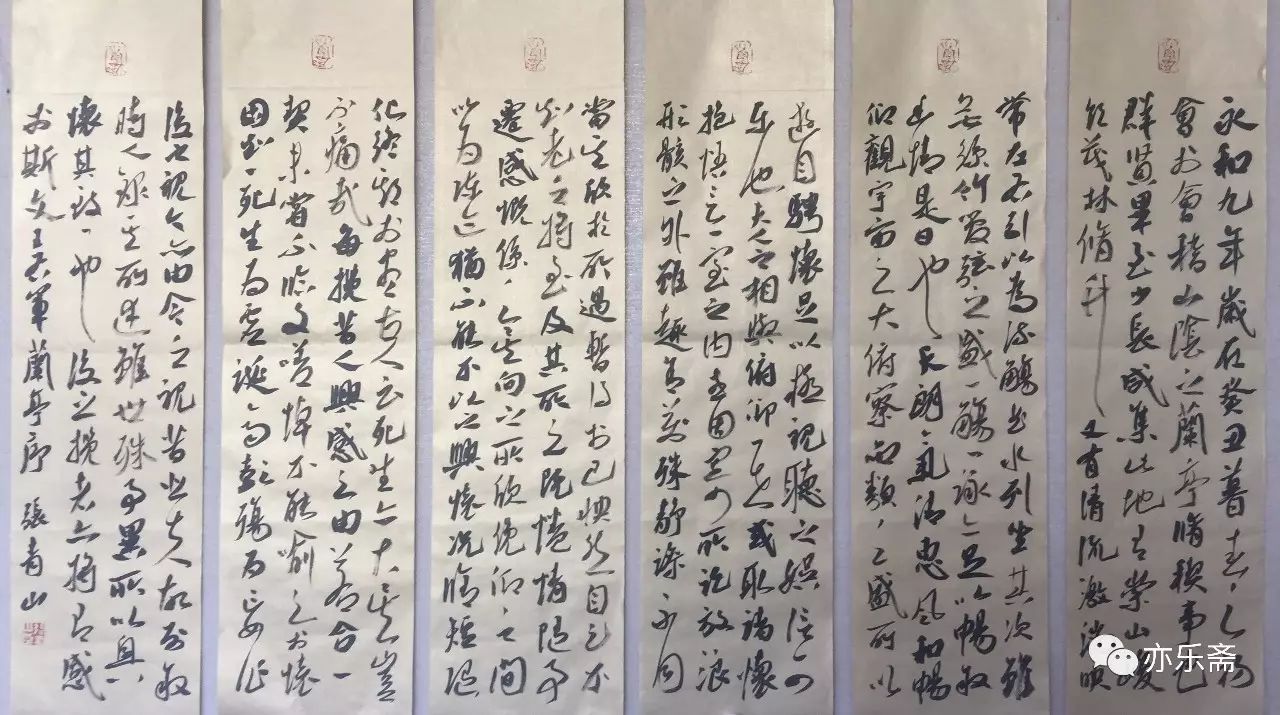 永和九年歲在癸丑暮春之初
會於會稽山陰之蘭亭脩禊事也
群賢畢至少長咸集此地有崇山峻
領茂林脩竹又有清流激湍暎
帶左右引以為流觴曲水列坐其次雖
無絲竹管弦之盛一觴一詠亦足以暢敘
幽情是日也天朗氣清惠風和暢
仰觀宇宙之大俯察品類之盛所以
遊目騁懷足以極視聽之娛信可
樂也夫人之相與俯仰一世或取諸懷
抱悟言一室之內或因寄所託放浪
形骸之外雖趣舍萬殊靜躁不同
當其欣於所遇暫得於己怏然自足不
知老之將至及其所之既惓情隨事
遷感慨係之矣向之所欣俛仰之間
以為陳迹猶不能不以之興懷況脩短隨
化終期於盡古人云死生亦大矣豈
不痛哉每攬昔人興感之由若合一
契未嘗不臨文嗟悼不能喻之於懷
固知一死生為虛誕齊彭殤為妄作
後之視今亦由今之視昔悲夫故列敘
時人錄其所述雖世殊事異所以興
懷其致一也後之攬者亦將有感
於斯文王右軍蘭亭序 張青山
亦乐斋